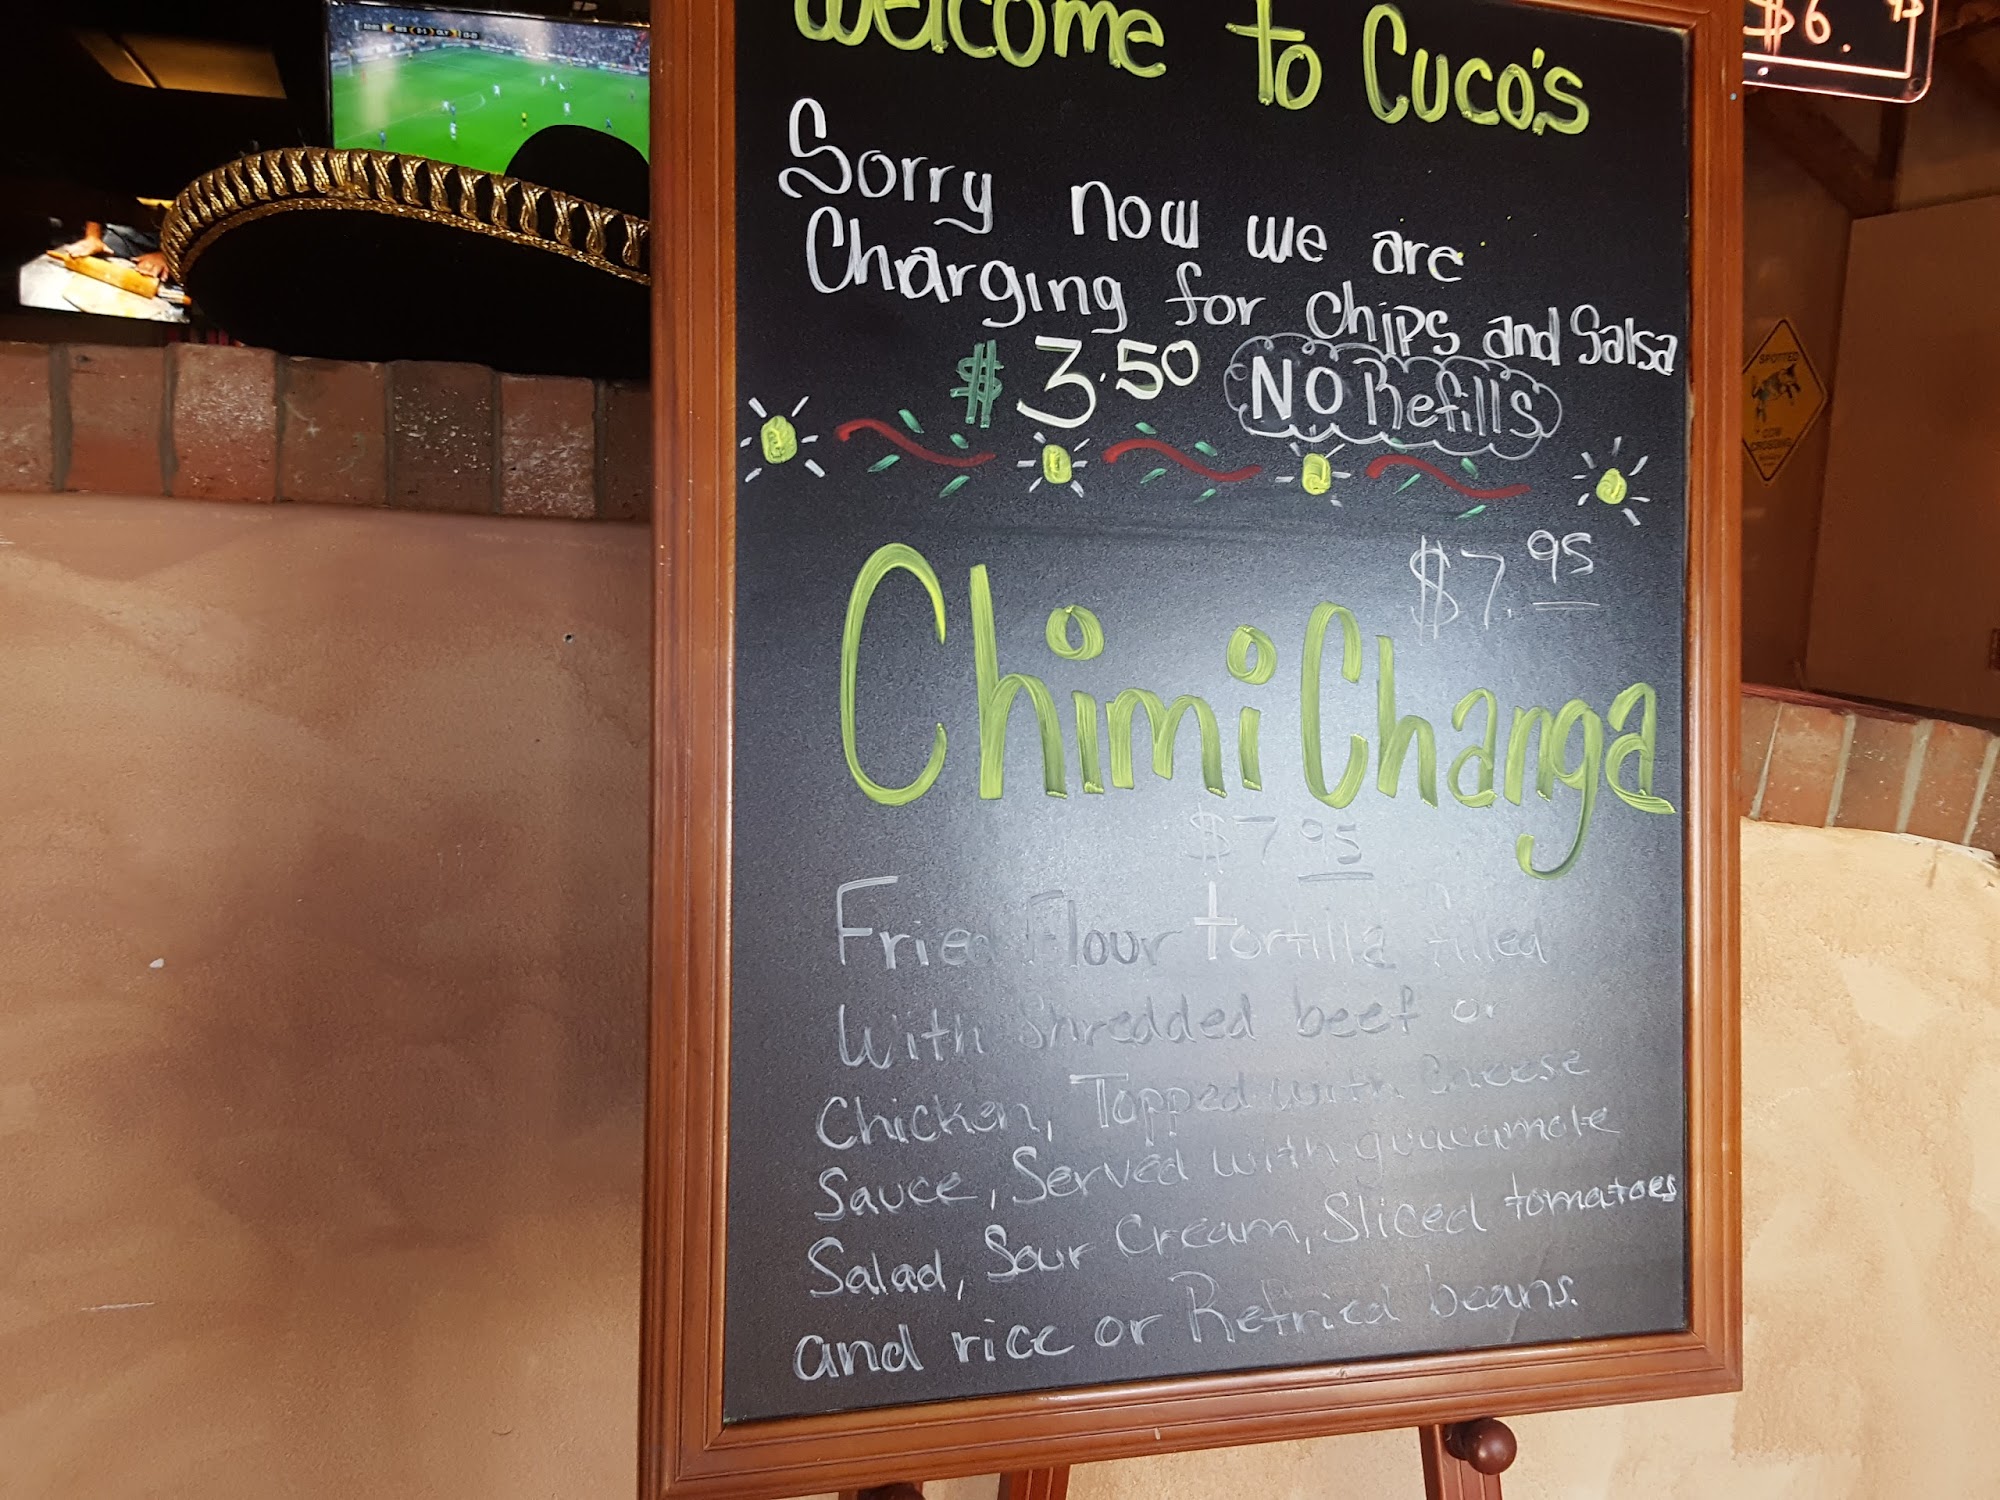 Welcome to Cuco's
Sorry now we are
Charging for Chips and Salsa
$ 3.50 NO Refills
$7.95
ChimiChanga
$7 95
Fried Flour tortilla filled
With Shredded beef or
Chicken, Topped with Cheese
Sauce, Served with guacamole
Salad, Sour Cream, Sliced tomatoes
and rice or Refried beans.
$6. 95
SPOTTED
COW
CROSSING
LIVE